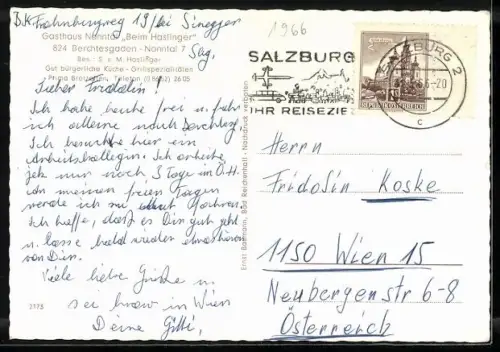 1966
Gasthaus Nanntal „Beim Haslinger"
824 Berchtesgaden - Nanntal 7
Bes.: S. u. M. Haslinger
Gut bürgerliche Küche - Grillspezialitäten
Prima Brotzeiten, Telefon 26 05
Sbg.
Lieber Fridolin!
Ich habe heute frei u. fuhr
ich alleine nach
Ich besuchte hier ein
Arbeitskollegin. Ich arbeite
jetz nur noch 5 Tage im
meinen freien Tagen
werde ich
Ich hoffe, daß es Dir gut geht
u. lasse bald wieder etwas hören
von Dir.
Viele liebe Grüße u.
sei brav in Wien
Deine Gitti,
3175
Ernst Baumann, Bad Reichenhall - Nachdruck verboten
SALZBURG
IHR REISEZIEL
SALZBURG 2
-20
c
REPUBLIK ÖSTERREICH
Herrn
Fridolin Koske
1150 Wien 15
Neubergenstr 6-8
Österreich